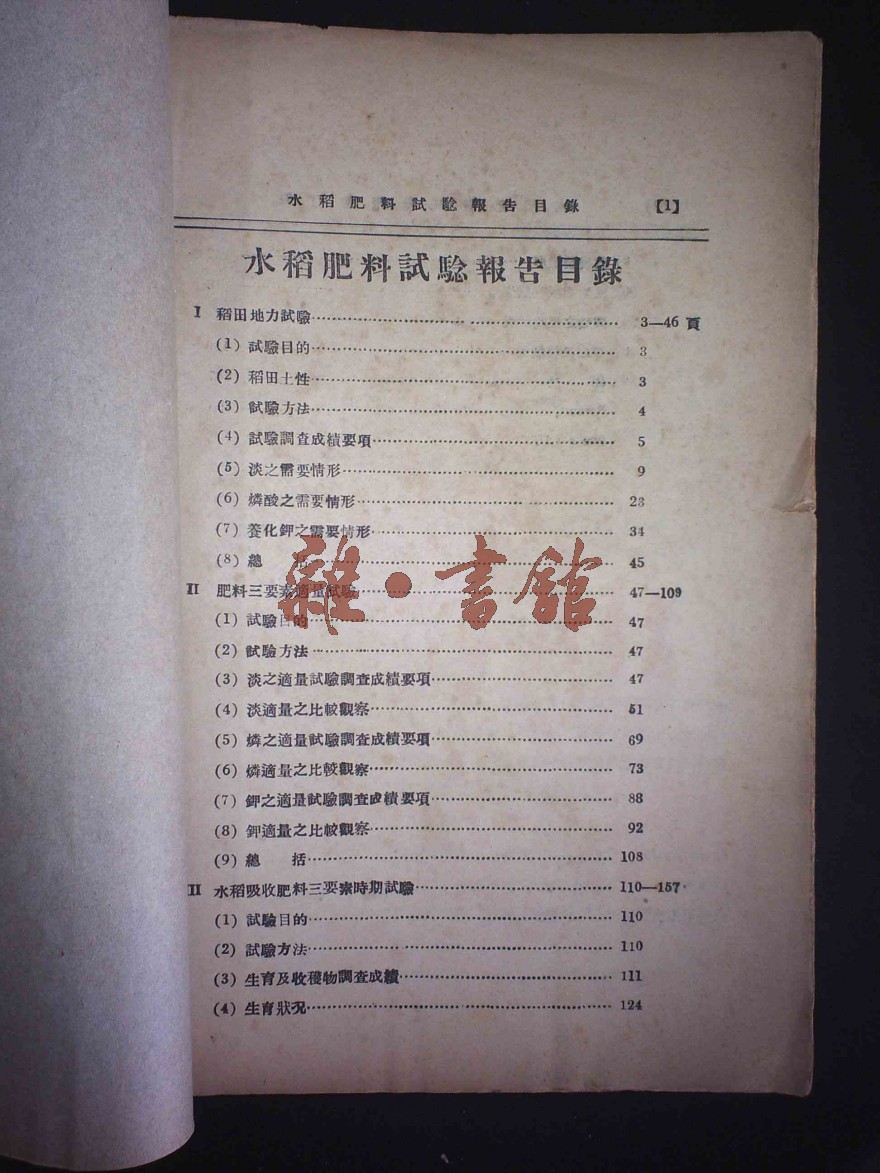 水稻肥料試驗報告目錄 【1】
水稻肥料試驗報告目錄
I 稻田地力試驗 3—46 頁
(1) 試驗目的 3
(2) 稻田土性 3
(3) 試驗方法 4
(4) 試驗調查成績要項 5
(5) 淡之需要情形 9
(6) 燐酸之需要情形 23
(7) 養化鉀之需要情形 34
(8) 總 括 45
雜·書館
II 肥料三要素適量試驗 47—109
(1) 試驗目的 47
(2) 試驗方法 47
(3) 淡之適量試驗調查成績要項 47
(4) 淡適量之比較觀察 51
(5) 燐之適量試驗調查成績要項 69
(6) 燐適量之比較觀察 73
(7) 鉀之適量試驗調查成績要項 88
(8) 鉀適量之比較觀察 92
(9) 總 括 108
II 水稻吸收肥料三要素時期試驗 110—157
(1) 試驗目的 110
(2) 試驗方法 110
(3) 生育及收穫物調查成績 111
(4) 生育狀況 124